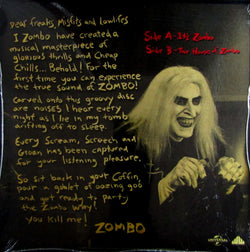 Dear freaks, Misfits and Lowlifes
I Zombo have created a
musical masterpiece of
glorious thrills and Cheap
Chills... Behold! For the
first time you can experience
the true sound of ZOMBO!
Carved onto this groovy disc
are noises I hear every
night as I lie in my tomb
drifting off to sleep.
Every Scream, Screech, and
Groan has been captured
for your listening pleasure.
So sit back in your Coffin,
pour a goblet of oozing goo
and get ready to party
the Zombo Way!
You Kill me!
ZOMBO
Side A - It's Zombo
Side B - The House of Zombo
UNIVERSAL